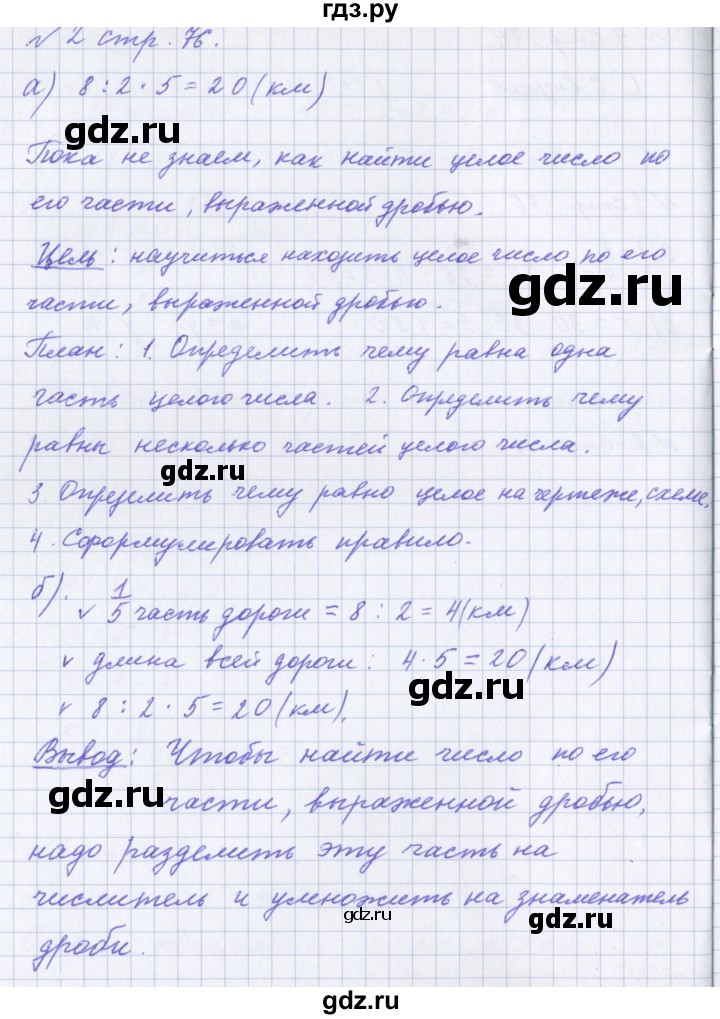 гдз.ру
№ 2 стр. 76.
а) 8 : 2 · 5 = 20 (км)
gdz.ru
Пока не знаем, как найти целое число по
его части, выраженной дробью.
Цель: научиться находить целое число по его
gdz.ru
части, выраженной дробью.
План: 1. Определить чему равна одна
часть целого числа. 2. Определить чему
равны несколько частей целого числа.
gdz.ru
3. Определить чему равно целое на чертеже, схеме.
4. Сформулировать правило.
б). ✓ 1/5 часть дороги = 8 : 2 = 4 (км)
✓ длина всей дороги: 4 · 5 = 20 (км)
gdz.ru
✓ 8 : 2 · 5 = 20 (км).
Вывод: Чтобы найти число по его
gdz.ru
части, выраженной дробью,
надо разделить эту часть на
числитель и умножить на знаменатель
gdz.ru
дроби.
gdz.ru